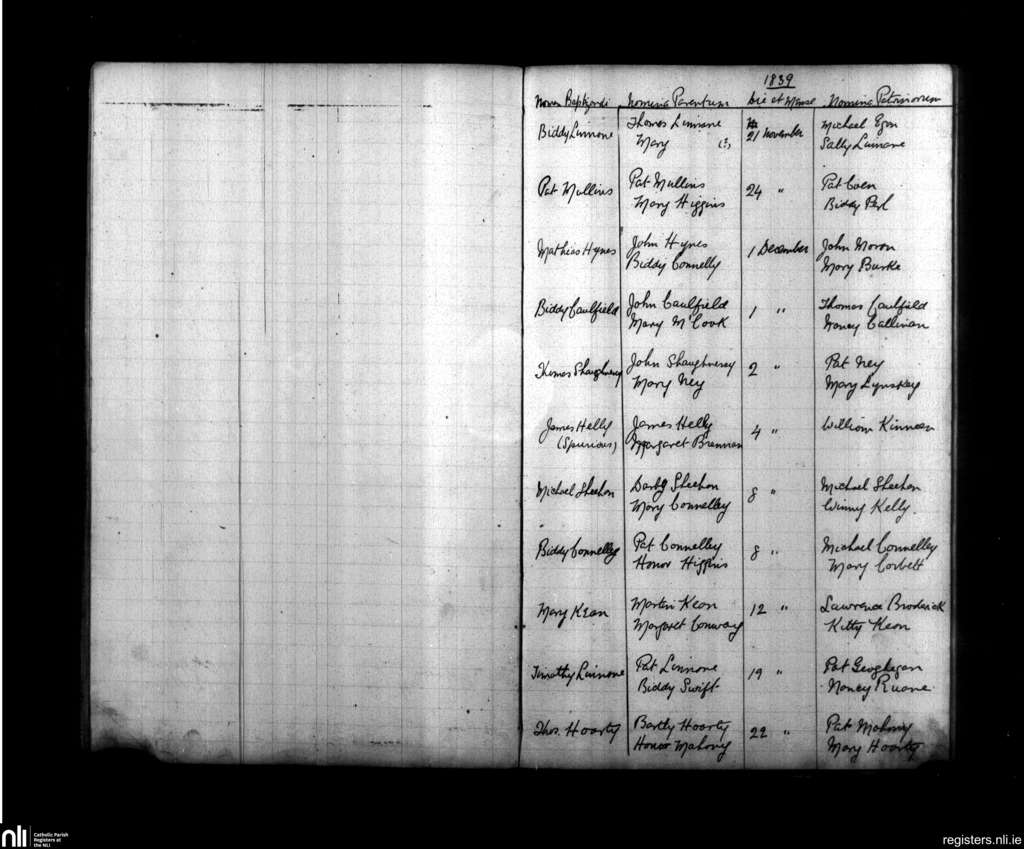 1839
Nomen Baptizandi Nomina Parentum Die et Mense Nomina Patrinorum
Biddy Linnane Thomas Linnane 21 November Michael Egan
Mary (?) Sally Linnane
Pat Mullins Pat Mullins 24 " Pat Coen
Mary Higgins Biddy
Mathias Hynes John Hynes 1 December John Moran
Biddy Connelly Mary Burke
Biddy Caulfield John Caulfield 1 " Thomas Caulfield
Mary McCook Honey Callinan
Thomas Shaughnessy John Shaughnessy 2 " Pat Ney
Mary Ney Mary Lynskey
James Helly James Helly 4 " William Kinnean
(Spurious) Margaret Brennan
Michael Sheehan Darby Sheehan 8 " Michael Sheehan
Mary Connelley Winny Kelly.
Biddy Connelley Pat Connelley 8 " Michael Connelley
Honor Higgins Mary Corbett
Mary Kean Martin Kean 12 " Lawrence Broderick
Margaret Conway Kitty Kean
Timothy Linnane Pat Linnane 19 " Pat Geoghegan
Biddy Swift Nancy Ruane.
Thos. Hoarty Bartly Hoarty 22 " Pat Mahony
Honor Mahony Mary Hoarty
nli Catholic Parish
Registers at
the NLI
registers.nli.ie